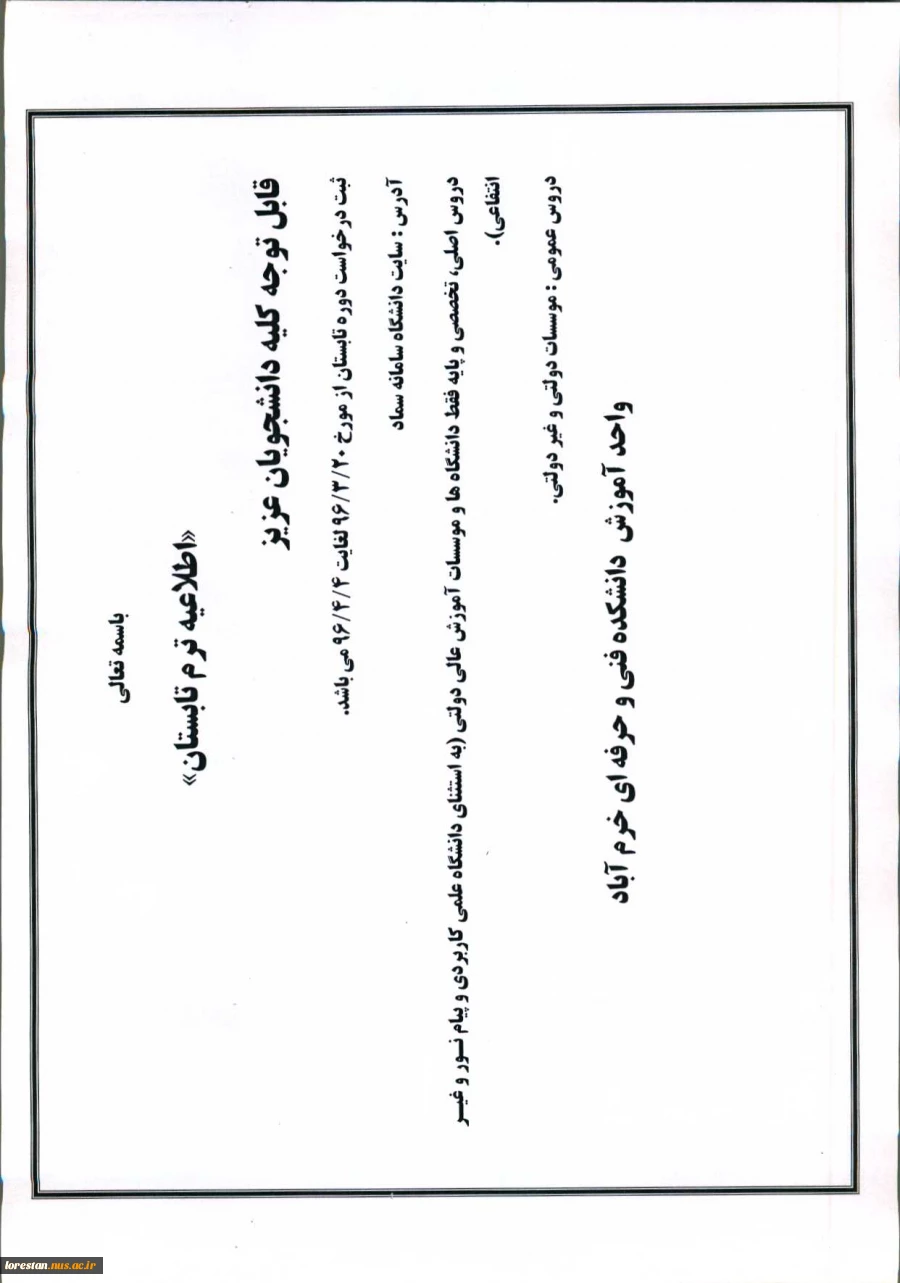 باسمه تعالی
«اطلاعیه ترم تابستان»
قابل توجه کلیه دانشجویان عزیز
ثبت درخواست دوره تابستان از مورخ ۹۶/۳/۲۰ لغایت ۹۶/۴/۴ می باشد.
آدرس : سایت دانشگاه سامانه سماد
دروس اصلی، تخصصی و پایه فقط دانشگاه ها و موسسات آموزش عالی دولتی (به استثنای دانشگاه علمی کاربردی و پیام نور و غیر
انتفاعی).
دروس عمومی : موسسات دولتی و غیر دولتی.
واحد آموزش دانشکده فنی و حرفه ای خرم آباد
lorestan.nus.ac.ir